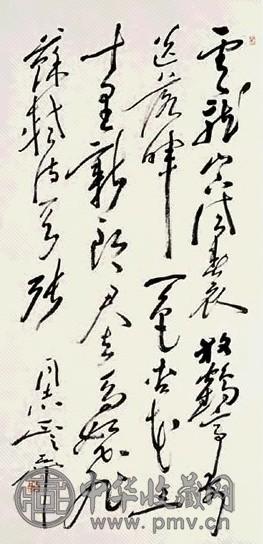 雲龍山下試春衣放鶴亭前
送落暉一色杏花三
十里新郎君去馬如飛
蘇軾詩
中华收藏网
www.pmv.cn